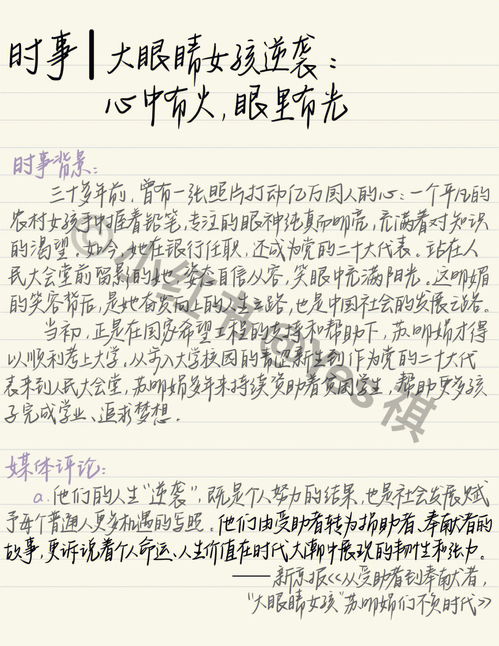 时事 | 大眼睛女孩逆袭:
心中有火,眼里有光
时事背景:
三十多年前,曾有一张照片打动亿万国人的心:一个平凡的
农村女孩手中握着铅笔,专注的眼神纯真而明亮,充满着对知识
的渴望。如今,她在银行任职,还成为党的二十大代表。站在人
民大会堂前留影的她,姿态自信从容,笑眼中充满阳光。这明媚
的笑容背后,是她奋发向上的人生之路,也是中国社会的发展之路。
当初,正是在国务希望工程的支持和帮助下,苏明娟才得
以顺利考上大学,从步入大学校园的青涩新生到作为党的二十大代
表来到人民大会堂,苏明娟多年来持续资助着贫困学生,帮助更多孩
子完成学业、追求梦想.
媒体评论:
a.他们的人生“逆袭”,既是个人努力的结果,也是社会发展赋
予每个普通人更多机遇的写照。他们由受助者转为捐助者、奉献者的
故事,更诉说着个人命运、人生价值在时代大潮中展现的韧性和张力。
——新京报《从受助者到奉献者,
“大眼睛女孩”苏明娟们不负时代》
@小红书@Yes祺